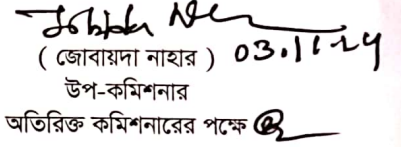 ( জোবায়দা নাহার ) 03.11.24
উপ-কমিশনার
অতিরিক্ত কমিশনারের পক্ষে